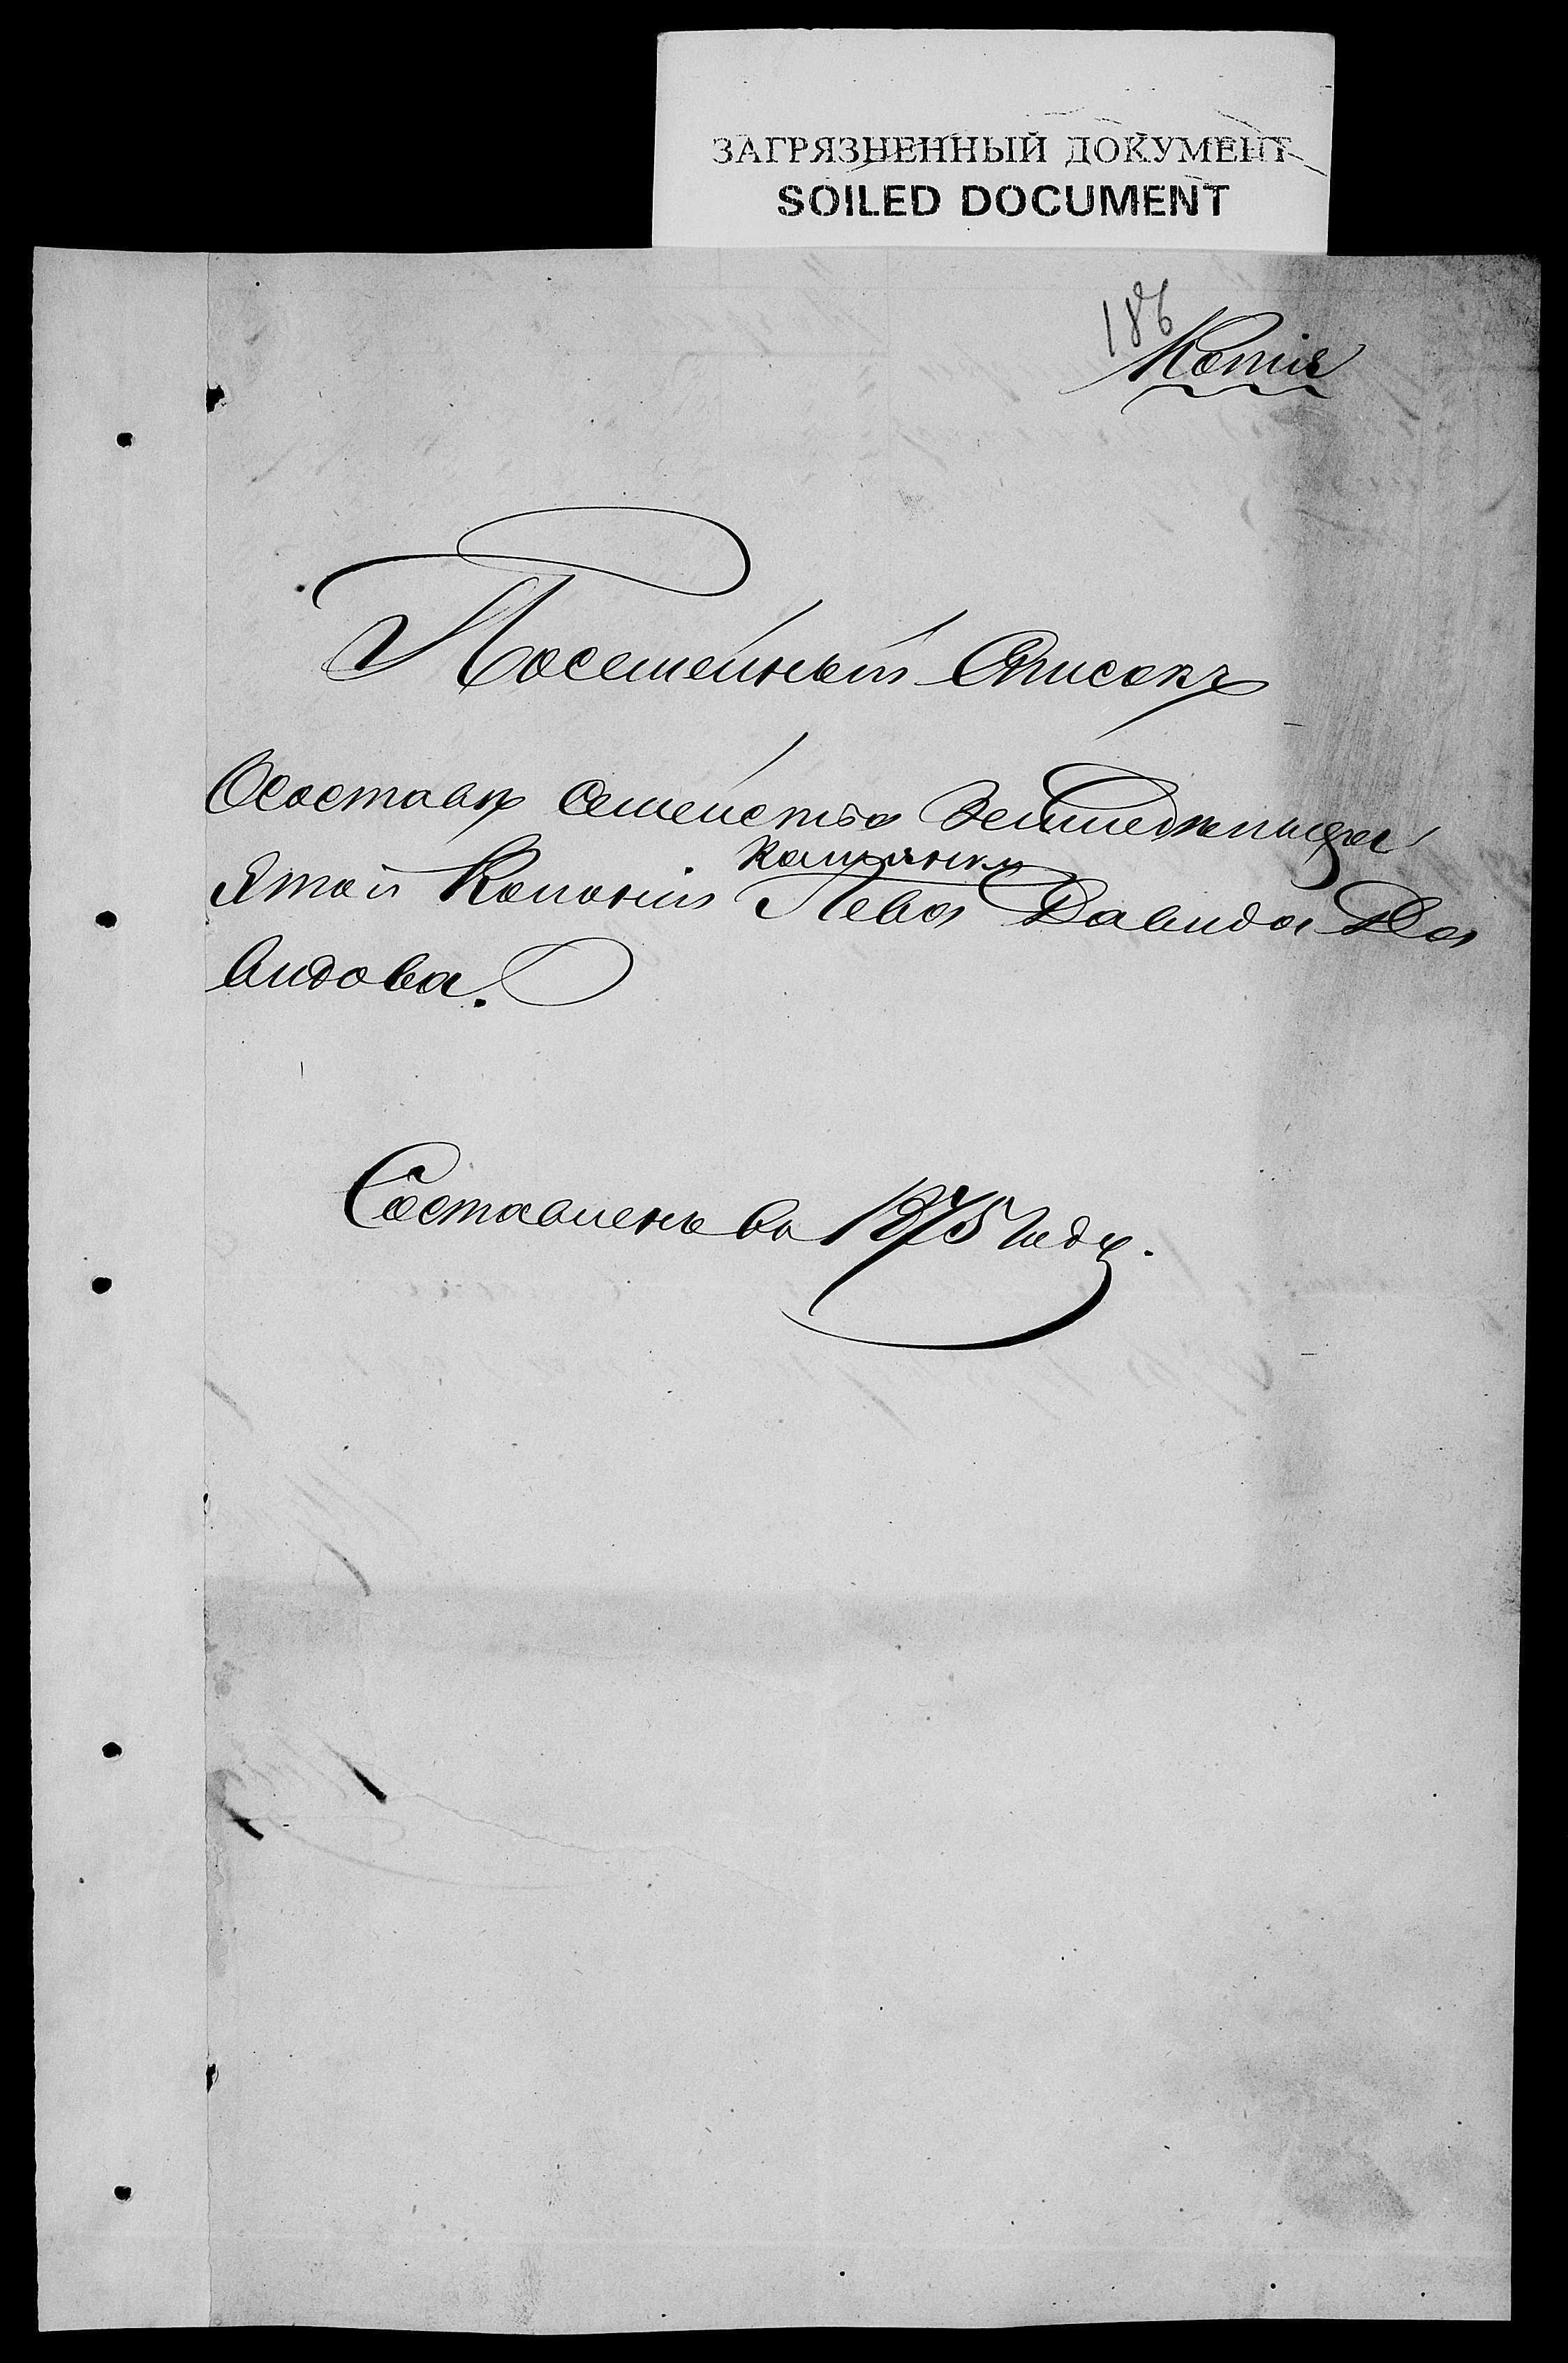 ЗАГРЯЗНЕННЫЙ ДОКУМЕНТ
SOILED DOCUMENT
186
Копія
Посемейный Списокъ
О составѣ семейства Земледѣльца
Ятой Колоніи Лева Давида Да
видова.
Составленъ въ 1875 году.